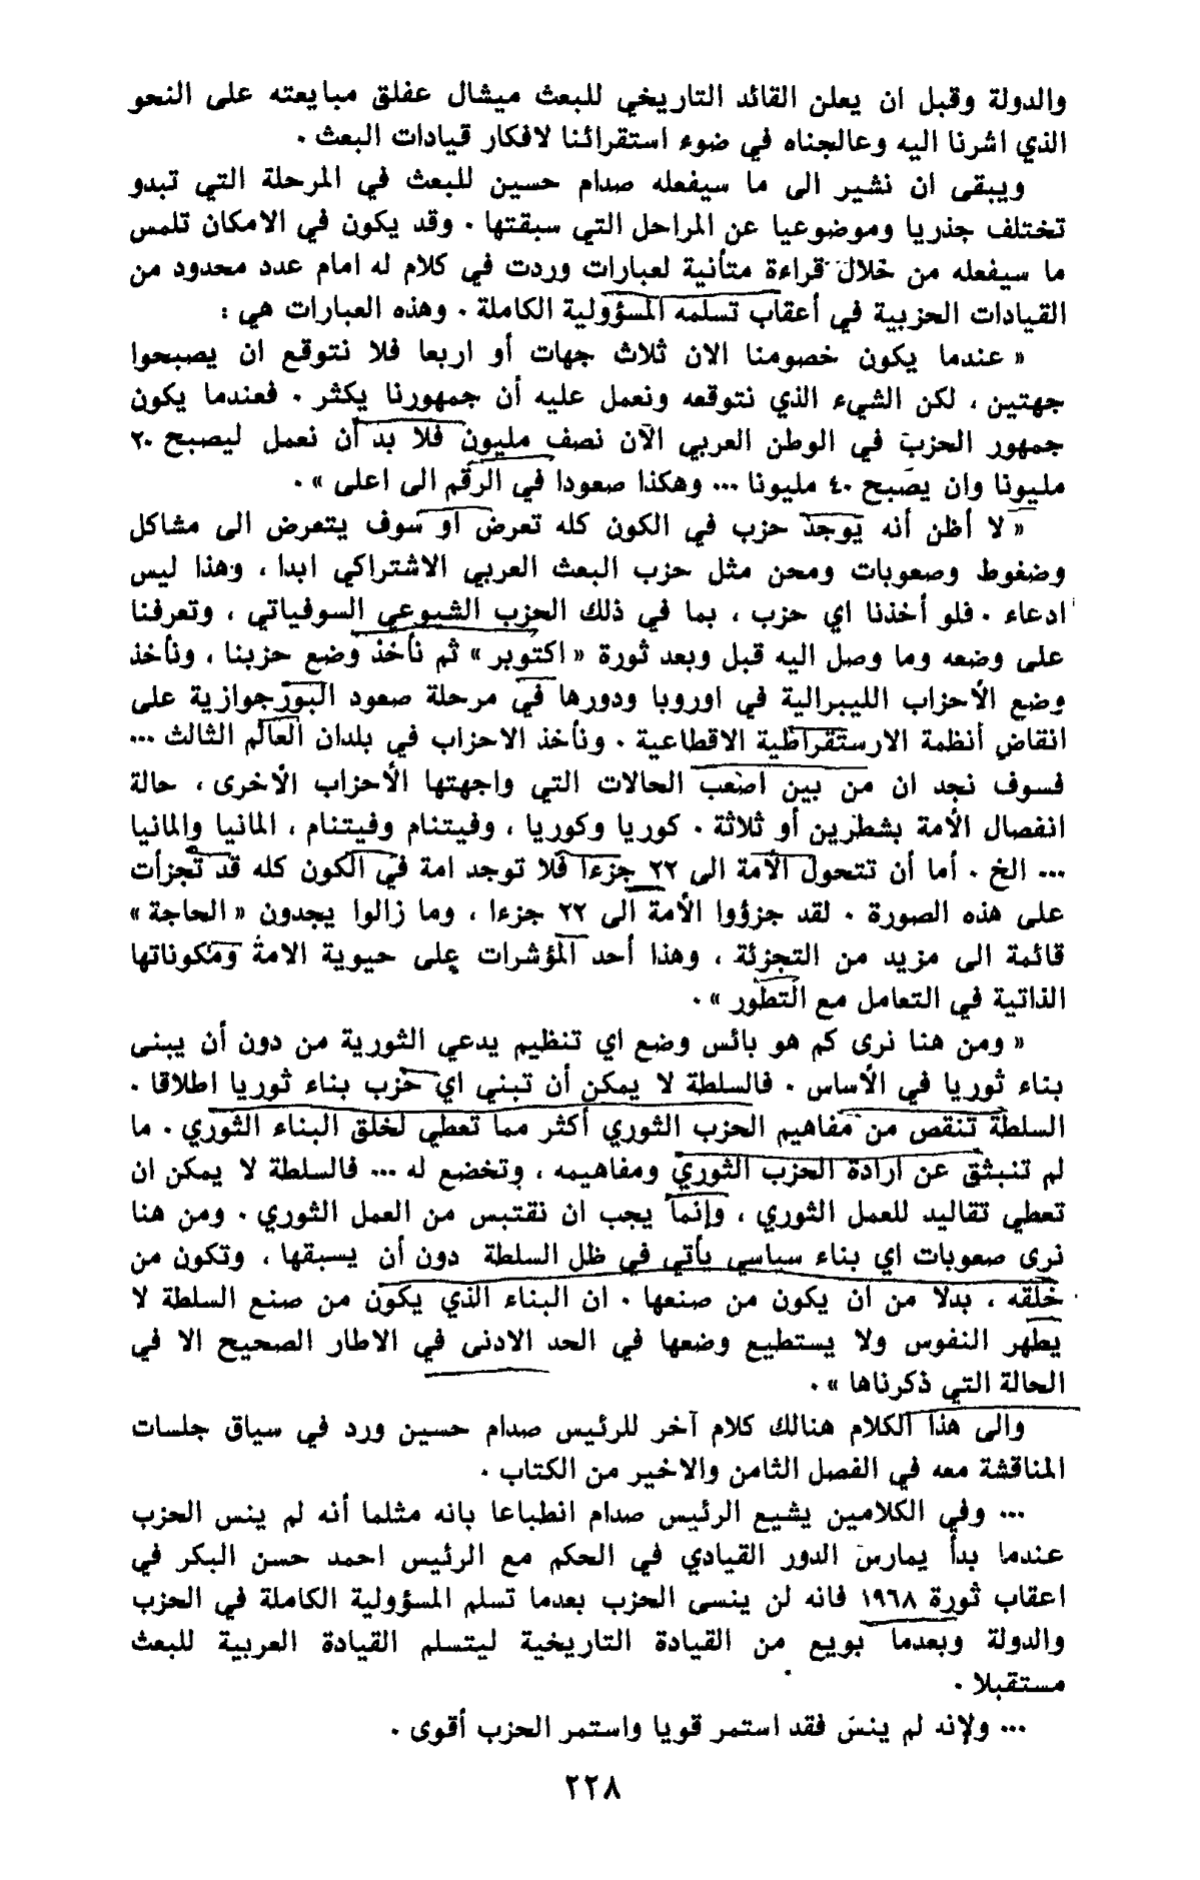 والدولة وقبل ان يعلن القائد التاريخي للبعث ميشال عفلق مبايعته على النحو
الذي اشرنا اليه وعالجناه في ضوء استقرائنا لافكار قيادات البعث .
ويبقى ان نشير الى ما سيفعله صدام حسين للبعث في المرحلة التي تبدو
تختلف جذريا وموضوعيا عن المراحل التي سبقتها . وقد يكون في الامكان تلمس
ما سيفعله من خلال قراءة متأنية لعبارات وردت في كلام له امام عدد محدود من
القيادات الحزبية في أعقاب تسلمه المسؤولية الكاملة . وهذه العبارات هي :
« عندما يكون خصومنا الان ثلاث جهات أو اربعا فلا نتوقع ان يصبحوا
جهتين ، لكن الشيء الذي نتوقعه ونعمل عليه أن جمهورنا يكثر . فعندما يكون
جمهور الحزب في الوطن العربي الآن نصف مليون فلا بد أن نعمل ليصبح ٢٠
مليونا وان يصبح ٤٠ مليونا ... وهكذا صعودا في الرقم الى اعلى » .
« لا أظن أنه يوجد حزب في الكون كله تعرض او سوف يتعرض الى مشاكل
وضغوط وصعوبات ومحن مثل حزب البعث العربي الاشتراكي ابدا ، وهذا ليس
ادعاء . فلو أخذنا اي حزب ، بما في ذلك الحزب الشيوعي السوفياتي ، وتعرفنا
على وضعه وما وصل اليه قبل وبعد ثورة « اكتوبر » ثم نأخذ وضع حزبنا ، ونأخذ
وضع الأحزاب الليبرالية في اوروبا ودورها في مرحلة صعود البورجوازية على
انقاض أنظمة الارستقراطية الاقطاعية . ونأخذ الاحزاب في بلدان العالم الثالث ...
فسوف نجد ان من بين اصعب الحالات التي واجهتها الأحزاب الأخرى ، حالة
انفصال الأمة بشطرين أو ثلاثة . كوريا وكوريا ، وفيتنام وفيتنام ، المانيا والمانيا
... الخ . أما أن تتحول الأمة الى ٢٢ جزءا فلا توجد امة في الكون كله قد تجزأت
على هذه الصورة . لقد جزؤوا الأمة الى ٢٢ جزءا ، وما زالوا يجدون « الحاجة »
قائمة الى مزيد من التجزئة ، وهذا أحد المؤشرات على حيوية الامة ومكوناتها
الذاتية في التعامل مع التطور » .
« ومن هنا نرى كم هو بائس وضع اي تنظيم يدعي الثورية من دون أن يبنى
بناء ثوريا في الأساس . فالسلطة لا يمكن أن تبني اي حزب بناء ثوريا اطلاقا .
السلطة تنقص من مفاهيم الحزب الثوري أكثر مما تعطي لخلق البناء الثوري . ما
لم تنبثق عن ارادة الحزب الثوري ومفاهيمه ، وتخضع له ... فالسلطة لا يمكن ان
تعطي تقاليد للعمل الثوري ، وإنما يجب ان نقتبس من العمل الثوري . ومن هنا
نرى صعوبات اي بناء سياسي يأتي في ظل السلطة دون أن يسبقها ، وتكون من
خلقه ، بدلا من ان يكون من صنعها . ان البناء الذي يكون من صنع السلطة لا
يطهر النفوس ولا يستطيع وضعها في الحد الادنى في الاطار الصحيح الا في
الحالة التي ذكرناها » .
والى هذا الكلام هنالك كلام آخر للرئيس صدام حسين ورد في سياق جلسات
المناقشة معه في الفصل الثامن والاخير من الكتاب .
... وفي الكلامين يشيع الرئيس صدام انطباعا بانه مثلما أنه لم ينس الحزب
عندما بدأ يمارس الدور القيادي في الحكم مع الرئيس احمد حسن البكر في
اعقاب ثورة ١٩٦٨ فانه لن ينسى الحزب بعدما تسلم المسؤولية الكاملة في الحزب
والدولة وبعدما بويع من القيادة التاريخية ليتسلم القيادة العربية للبعث
مستقبلا .
... ولإنه لم ينس فقد استمر قويا واستمر الحزب أقوى .
٢٢٨